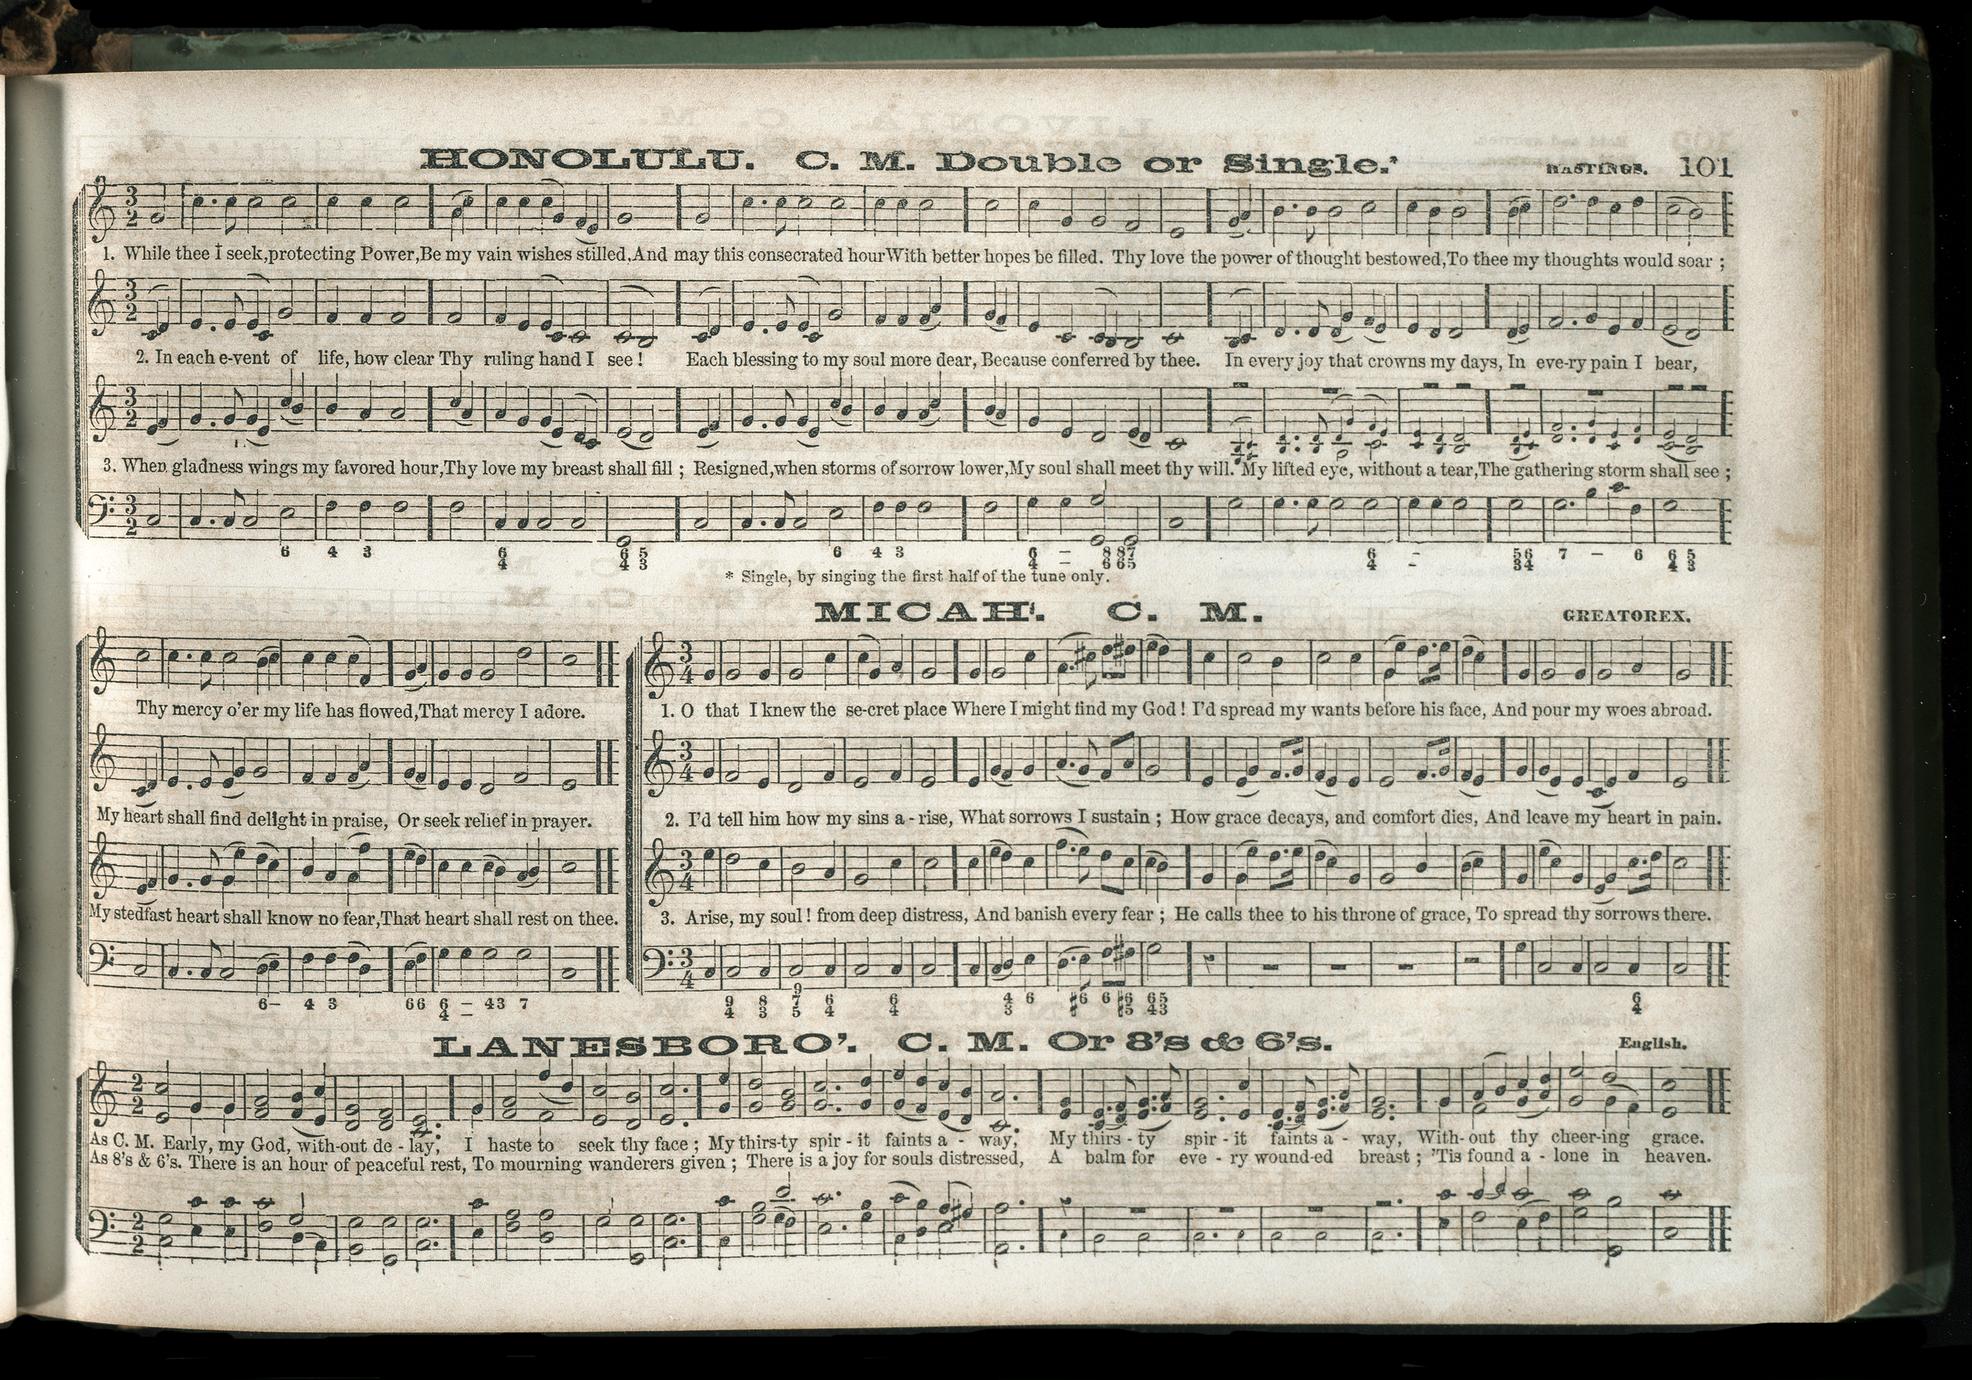 HONOLULU. C. M. Double or Single.* HASTINGS. 101
1. While thee I seek, protecting Power, Be my vain wishes stilled, And may this consecrated hour With better hopes be filled. Thy love the power of thought bestowed, To thee my thoughts would soar ;
2. In each e-vent of life, how clear Thy ruling hand I see ! Each blessing to my soul more dear, Because conferred by thee. In every joy that crowns my days, In eve-ry pain I bear,
3. When gladness wings my favored hour, Thy love my breast shall fill ; Resigned, when storms of sorrow lower, My soul shall meet thy will. My lifted eye, without a tear, The gathering storm shall see ;
6 4 3 6 6 5 6 4 3 6 – 8 87 6 - 56 7 – 6 6 5
4 4 3 4 – 6 65 4 - 34 4 3
* Single, by singing the first half of the tune only.
MICAH. C. M. GREATOREX.
Thy mercy o'er my life has flowed, That mercy I adore.
My heart shall find delight in praise, Or seek relief in prayer.
My stedfast heart shall know no fear, That heart shall rest on thee.
6– 4 3 66 6 – 43 7
4 –
1. O that I knew the se-cret place Where I might find my God ! I'd spread my wants before his face, And pour my woes abroad.
2. I'd tell him how my sins a - rise, What sorrows I sustain ; How grace decays, and comfort dies, And leave my heart in pain.
3. Arise, my soul ! from deep distress, And banish every fear ; He calls thee to his throne of grace, To spread thy sorrows there.
9
9 8 7 6 6 4 6 #6 6 #6 65 6
4 3 5 4 4 3 # 5 43 4
LANESBORO'. C. M. Or 8's & 6's. English.
As C. M. Early, my God, with-out de - lay, I haste to seek thy face ; My thirs-ty spir - it faints a - way, My thirs - ty spir - it faints a - way, With-out thy cheer-ing grace.
As 8's & 6's. There is an hour of peaceful rest, To mourning wanderers given ; There is a joy for souls distressed, A balm for eve - ry wound-ed breast ; 'Tis found a - lone in heaven.